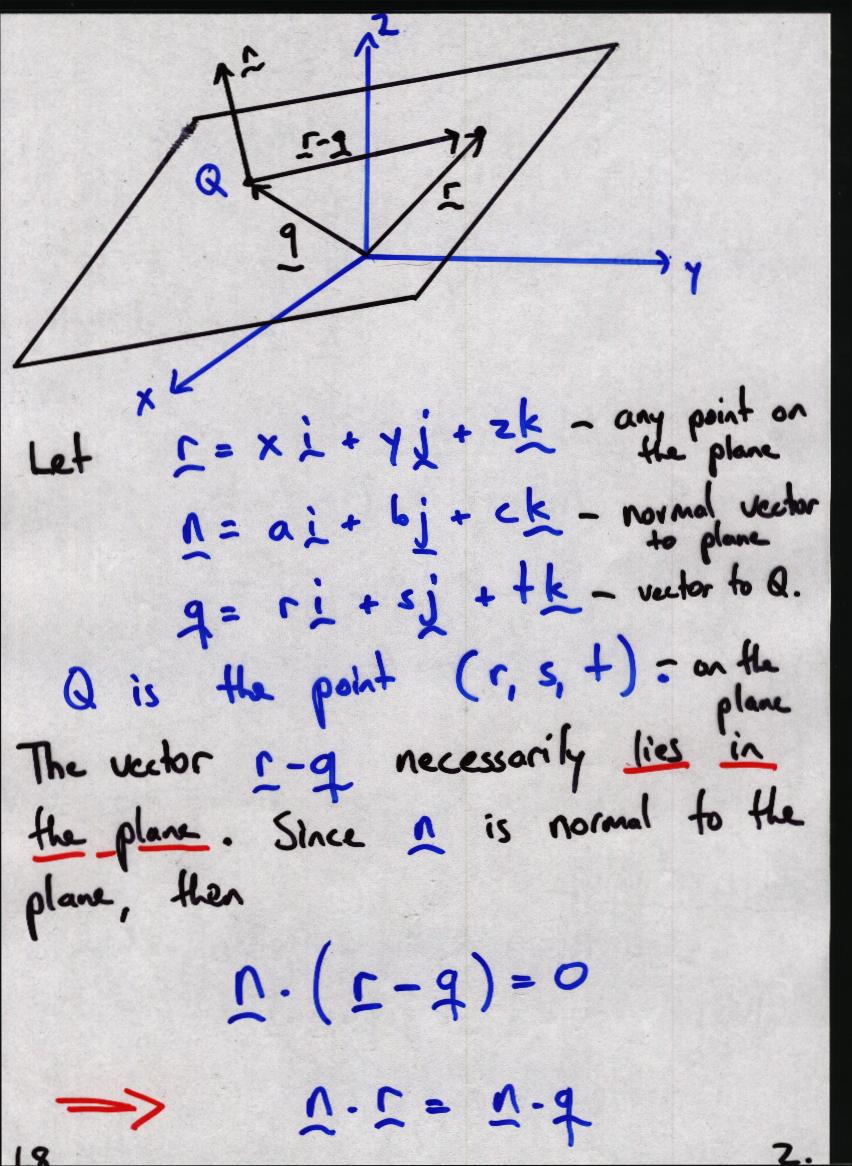 z
n
r-q
Q
r
q
y
x
Let r = x i + y j + z k - any point on
the plane
n = a i + b j + c k - normal vector
to plane
q = r i + s j + t k - vector to Q.
Q is the point (r, s, t). - on the
plane
The vector r-q necessarily lies in
the plane. Since n is normal to the
plane, then
n . (r - q) = 0
⟹ n . r = n . q
18 2.